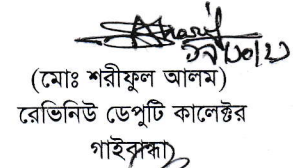 (মোঃ শরীফুল আলম)
রেভিনিউ ডেপুটি কালেক্টর
গাইবান্ধা